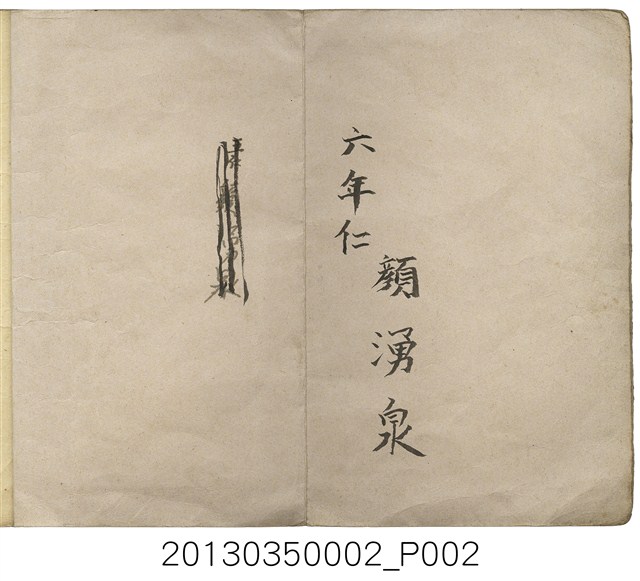 六年仁
顏湧泉
20130350002_P002